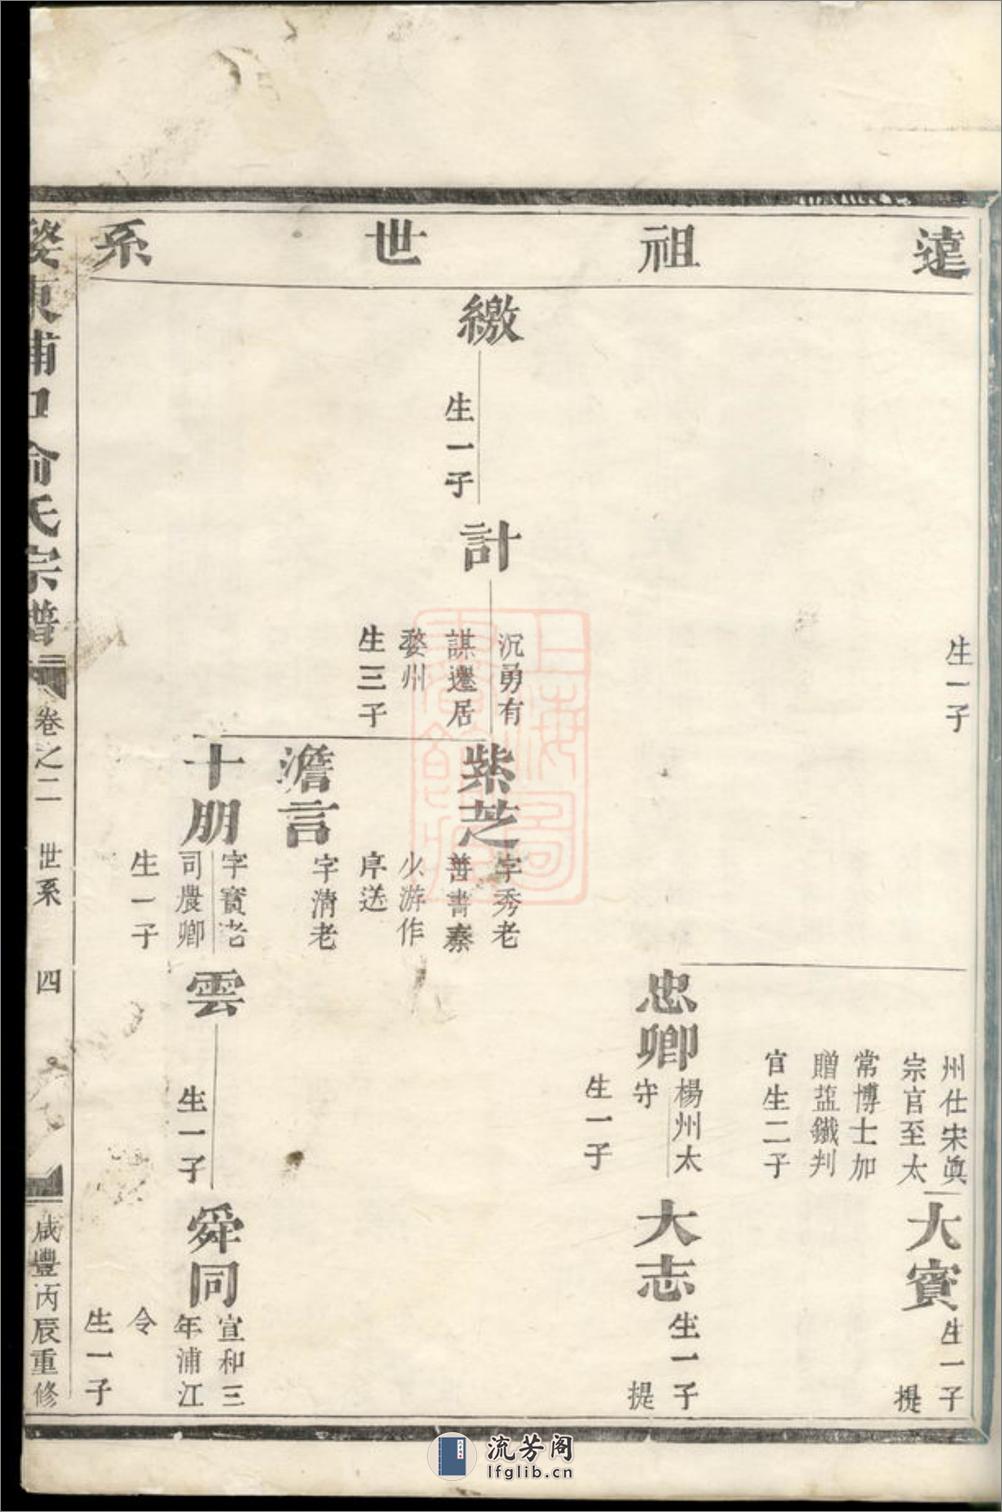 遠祖世系
生一子
州仕宋眞
宗官至太
常博士加
贈盐鐵判
官生二子
大賓
生一子
提
忠卿
楊州太
守
生一子
大志
生一子
提
繳
生一子
計
沉勇有
謀遷居
婺州
生三子
紫芝
字秀老
善書秦
少游作
序送
澹言
字清老
十朋
字寳老
司農卿
生一子
雲
生一子
舜同
宣和三
年浦江
令
生一子
婺東浦口俞氏宗譜
卷之二
世系
四
咸豐丙辰重修
上海圖書館藏
流芳阁
lfglib.cn